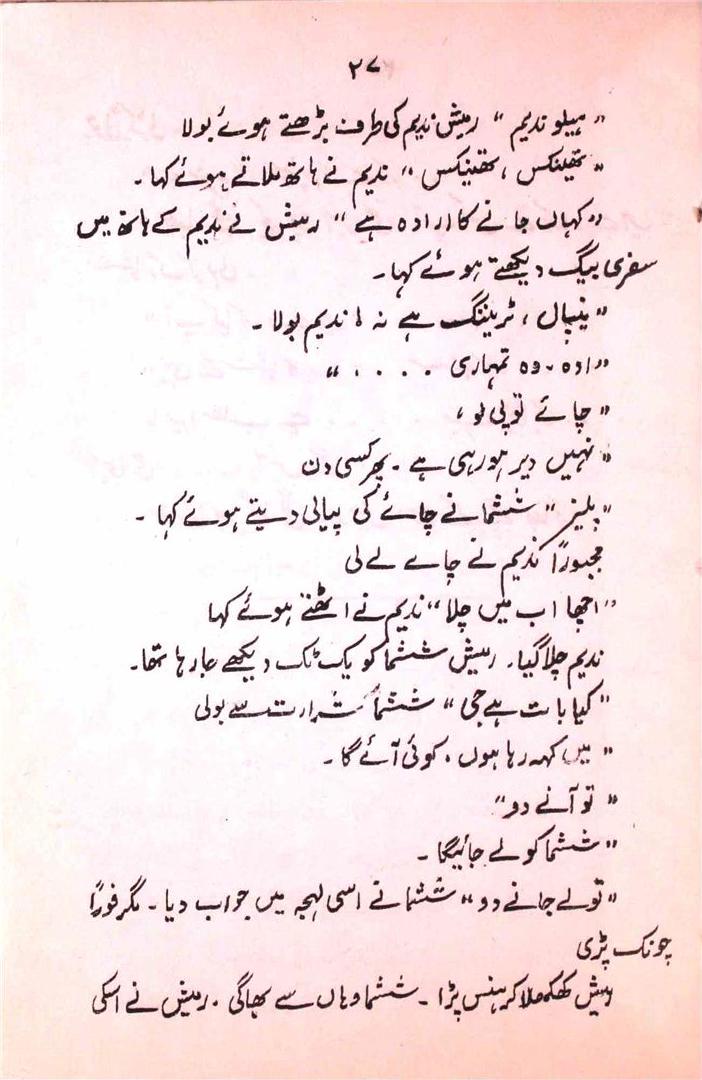 ۲۷
"ہیلو ندیم" رمیش ندیم کی طرف بڑھتے ہوئے بولا
"تھینکس، تھینکس" ندیم نے ہاتھ ملاتے ہوئے کہا۔
"کہاں جانے کا ارادہ ہے" رمیش نے ندیم کے ہاتھ میں
سفری بیگ دیکھتے ہوئے کہا۔
"نیپال، ٹریننگ ہے نہ! ندیم بولا۔
"اوہ۔ وہ تمہاری . . . . "
"چائے تو پی لو،
"نہیں دیر ہو رہی ہے۔ پھر کسی دن
"پلیز" ششما نے چائے کی پیالی دیتے ہوئے کہا۔
مجبوراً ندیم نے چاے لے لی
"اچھا اب میں چلا" ندیم نے اٹھتے ہوئے کہا
ندیم چلا گیا۔ رمیش ششما کو یک ٹک دیکھے جا رہا تھا۔
"کیا بات ہے جی" ششما شرارت سے بولی
"میں کہہ رہا ہوں۔ کوئی آئے گا۔
"تو آنے دو"
"ششما کو لے جائیگا۔
"تو لے جانے دو" ششما نے اسی لہجہ میں جواب دیا۔ مگر فوراً
چونک پڑی
رمیش کھکھلا کر ہنس پڑا۔ ششما وہاں سے بھاگی۔ رمیش نے اسکی